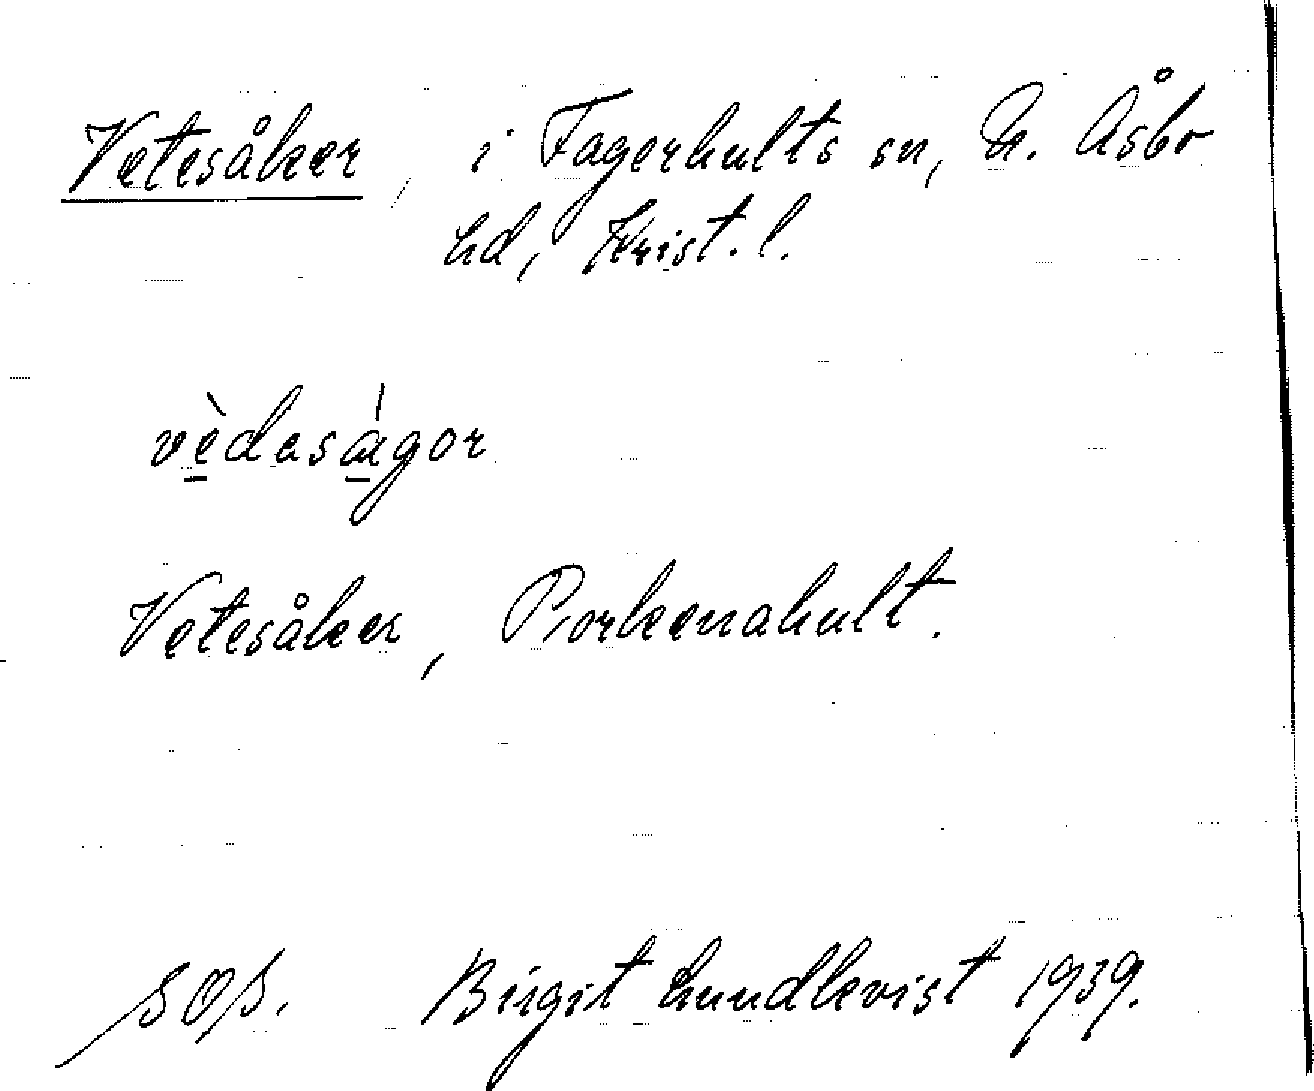 Vetesåker, i Fagerhults sn, N. Åsbo
hd, Krist. l.
vèdaságor
Vetesåker, Porkenahult.
sop. Birgit Lundkvist 1939.